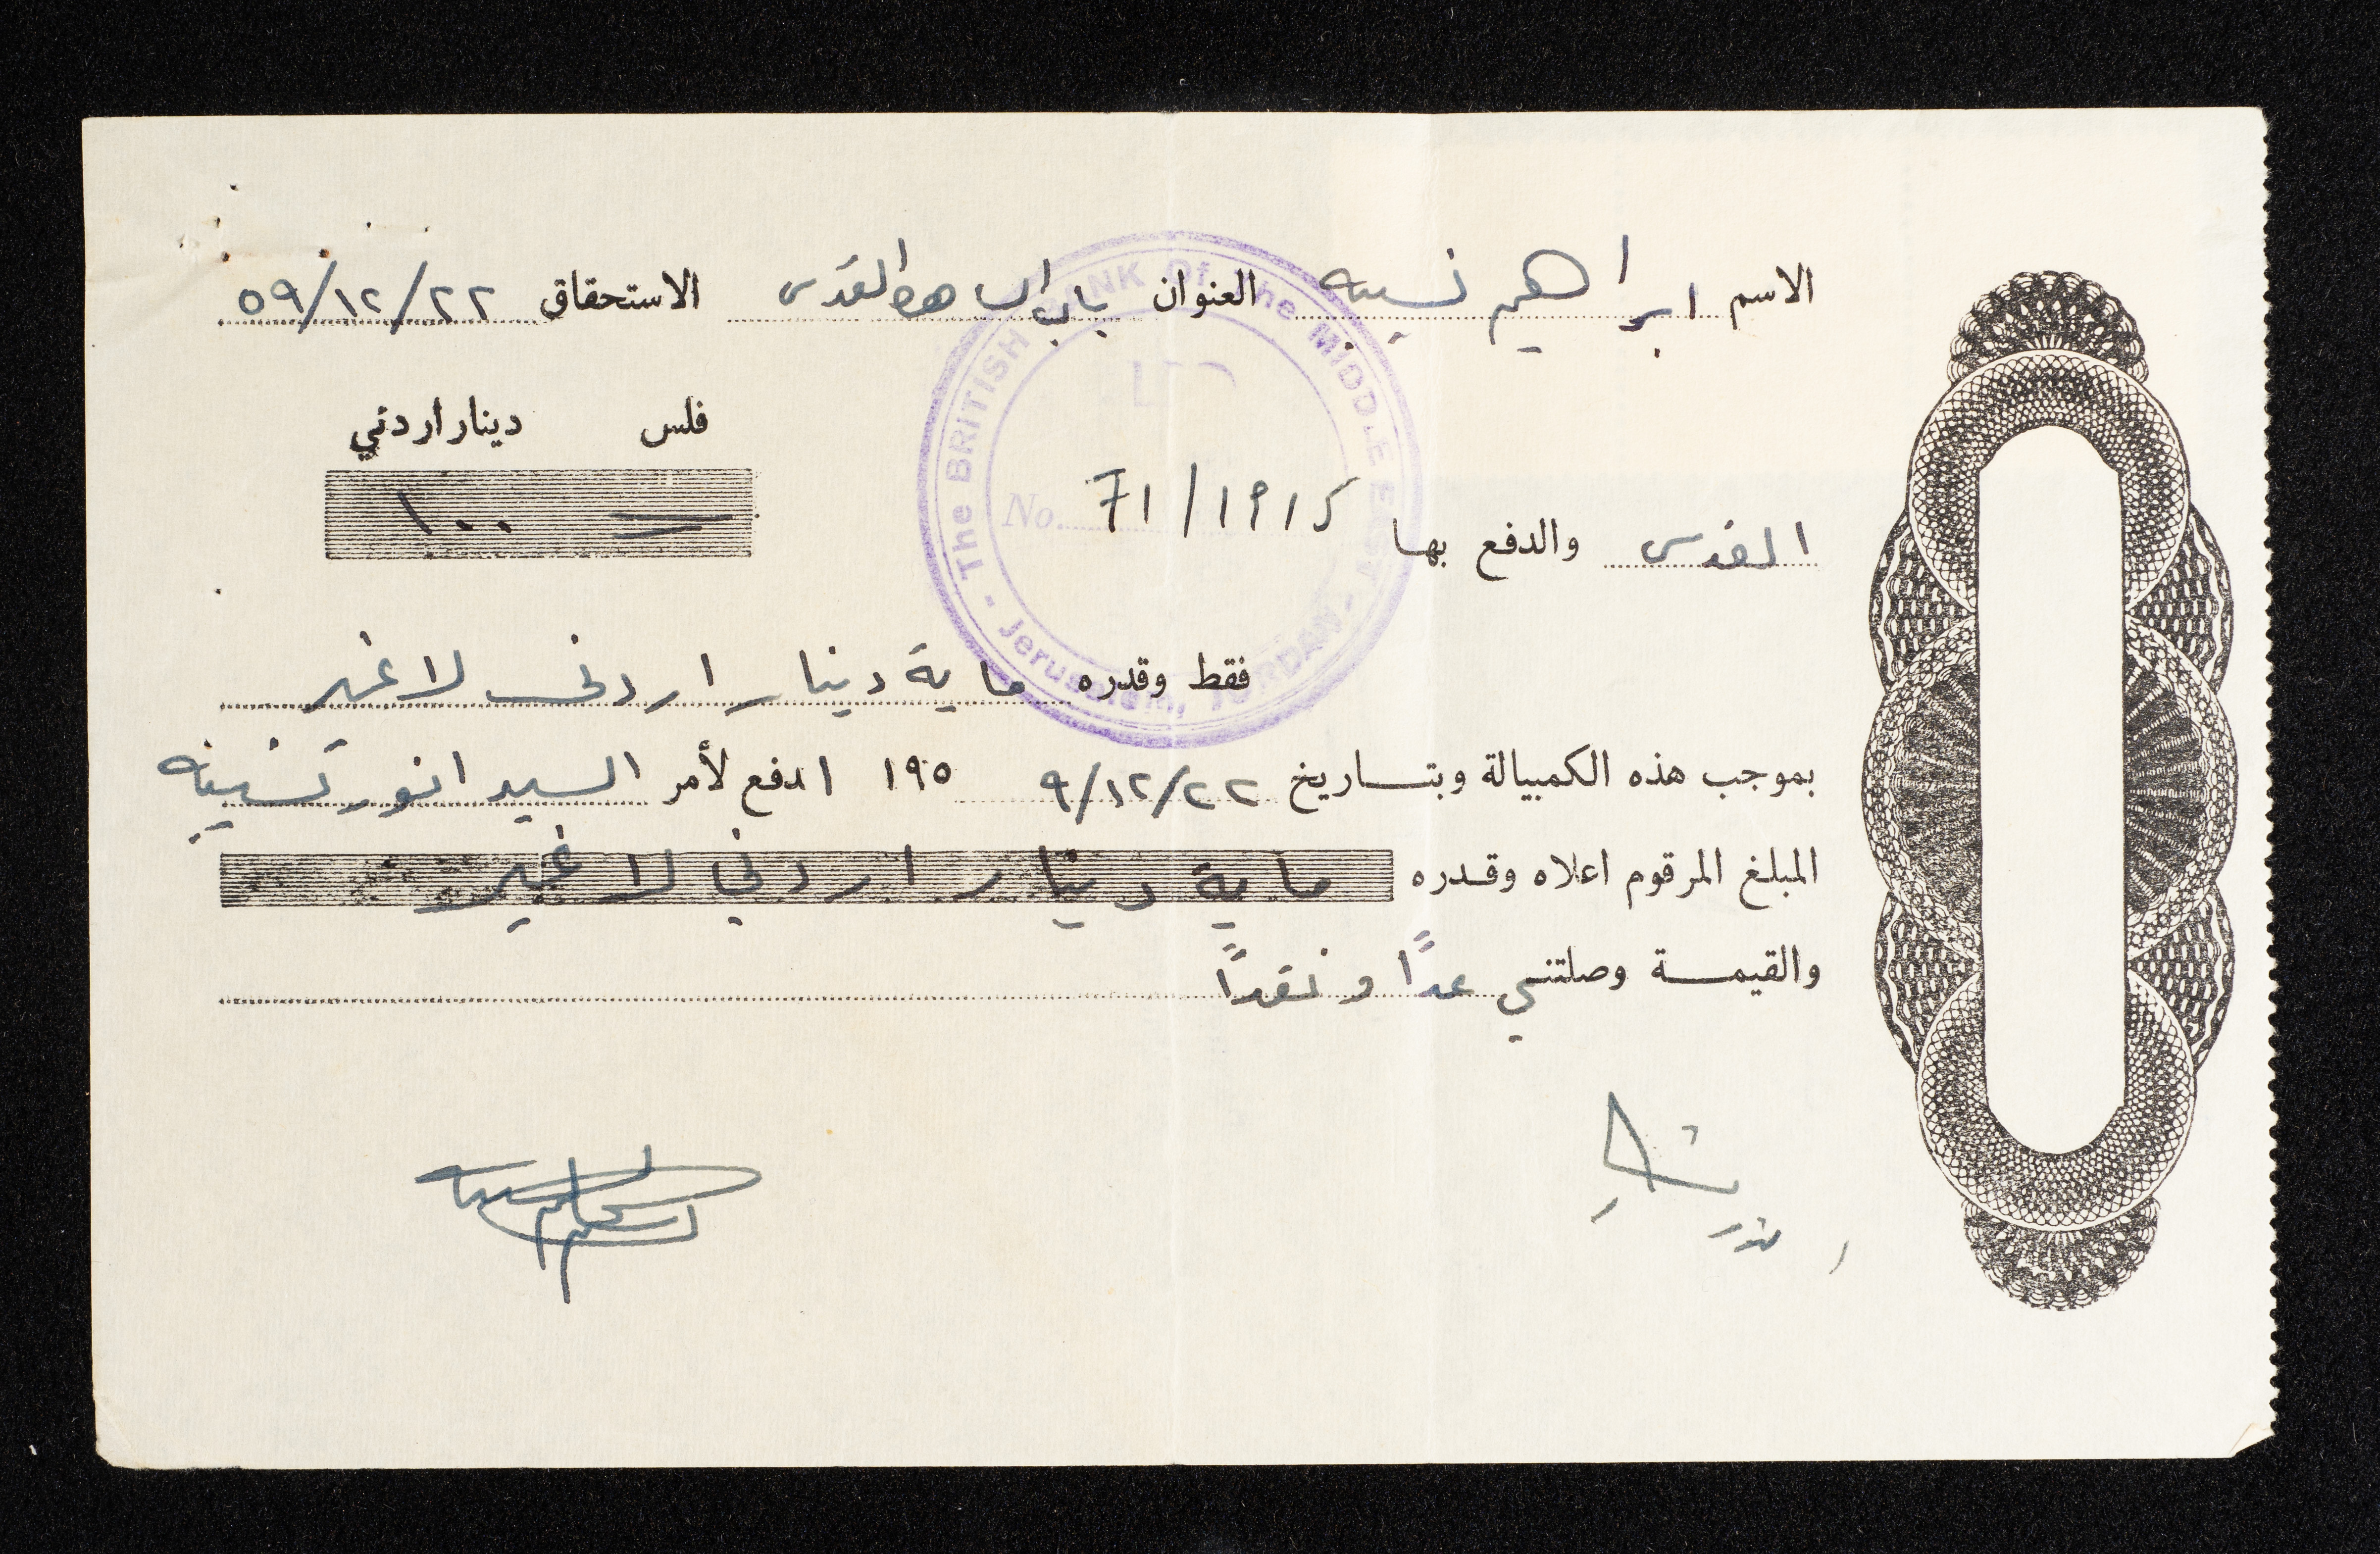 الاسم ابراهيم نسيبه العنوان باب الساهره القدس الاستحقاق ٥٩/١٢/٢٢
فلس دينار اردني
١٠٠
القدس والدفع بها
No. 71/1915
The BRITISH BANK Of The MIDDLE EAST - Jerusalem, JORDAN -
فقط وقدره ماية دينار اردني لا غير
بموجب هذه الكمبيالة وبتاريخ ٩/١٢/٢٢ ١٩٥ ادفع لأمر السيد انور نسيبه
المبلغ المرقوم اعلاه وقدره ماية دينار اردني لا غير
والقيمة وصلتني عدًا و نقدًا